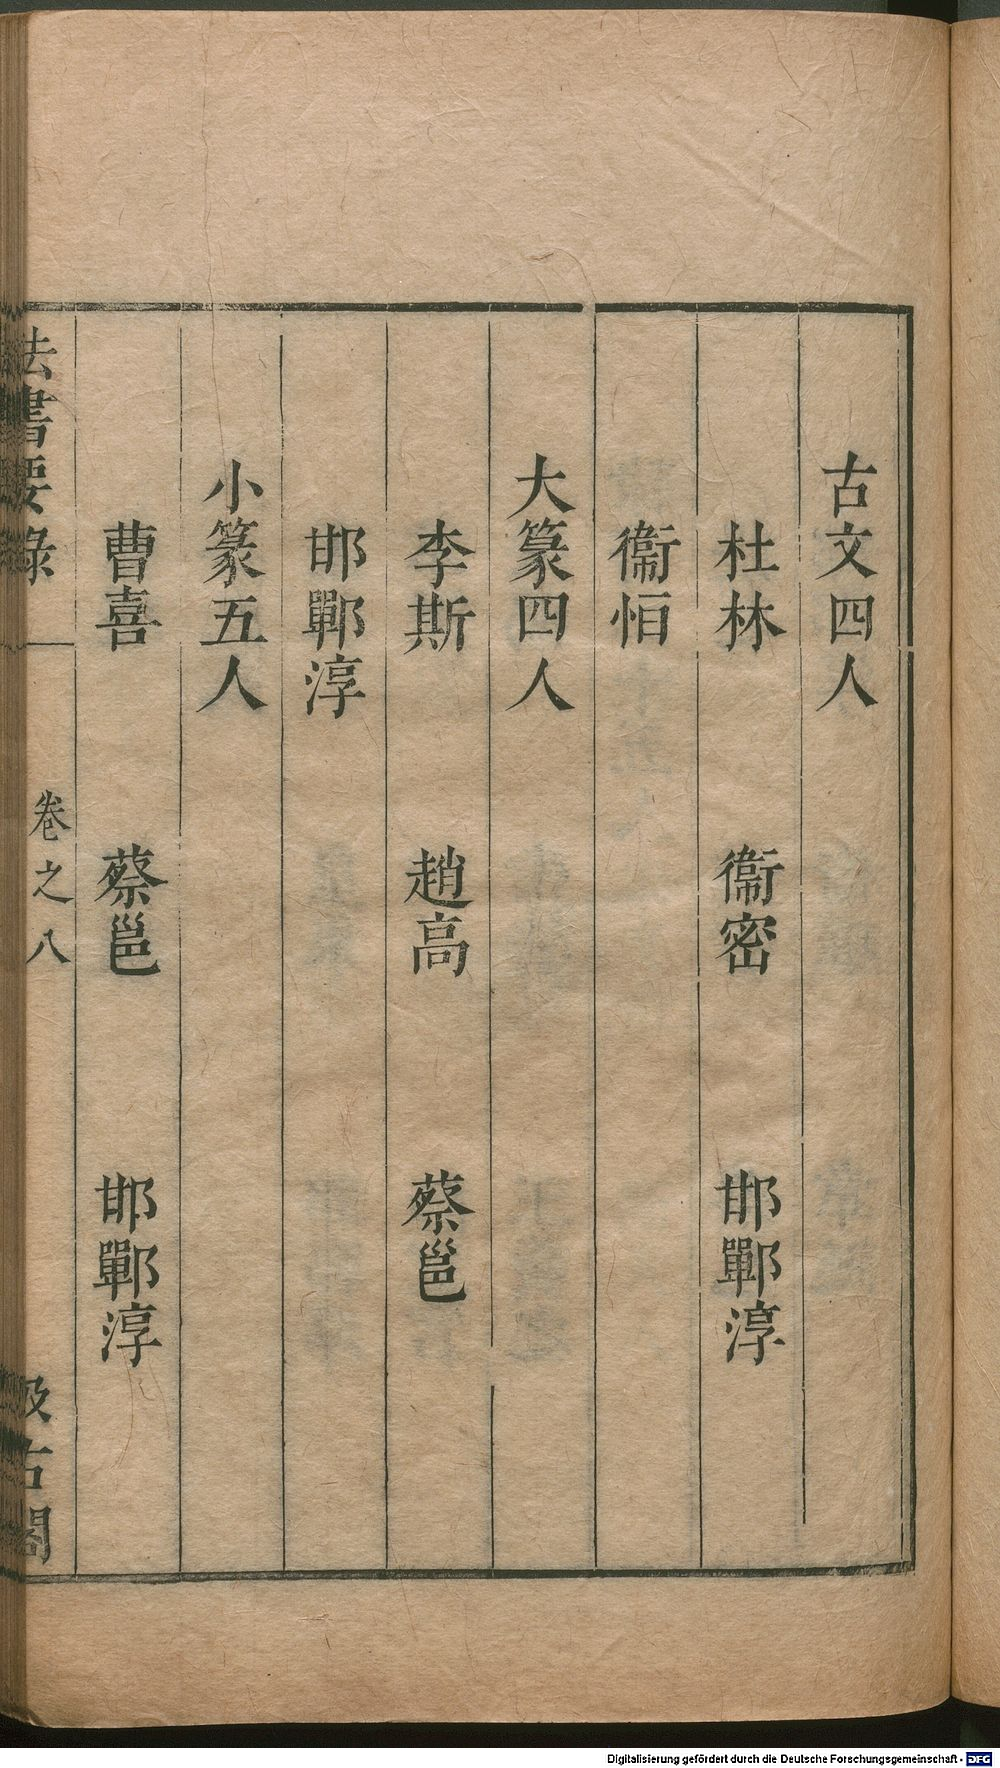 古文四人
杜林 衞密 邯鄲淳
衞恒
大篆四人
李斯 趙高 蔡邕
邯鄲淳
小篆五人
曹喜 蔡邕 邯鄲淳
法書要錄 卷之八 汲古閣
Digitalisierung gefördert durch die Deutsche Forschungsgemeinschaft - DFG